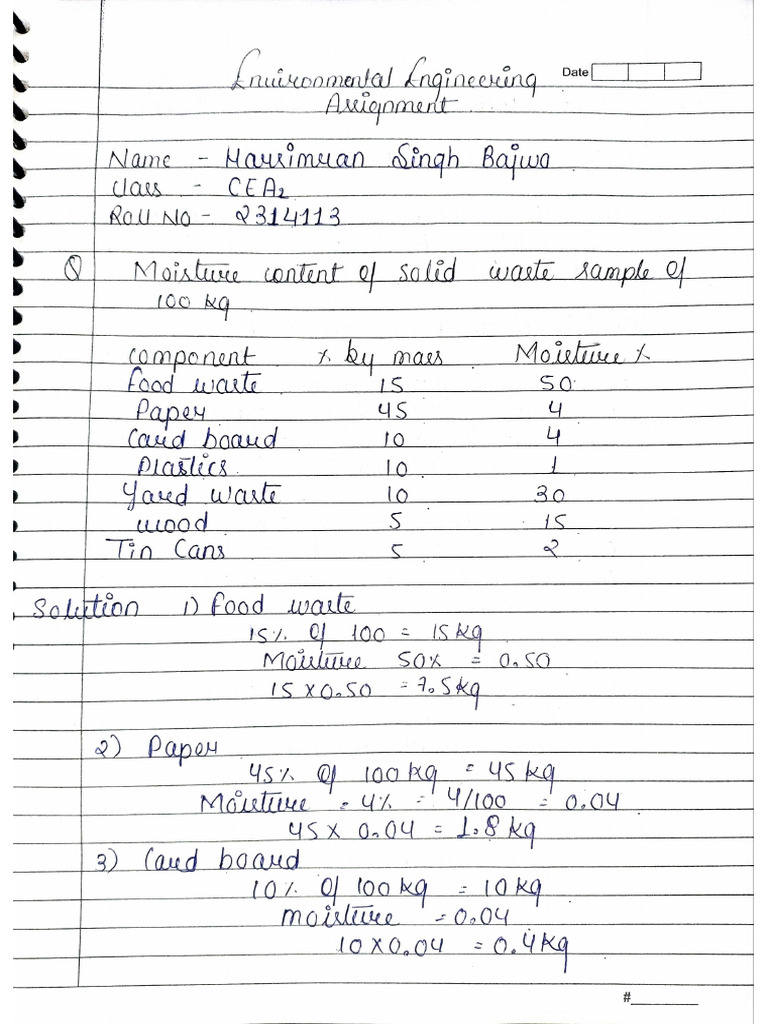 Environmental Engineering Date
Assignment
Name - Harsimran Singh Bajwa
Class - CEA2
Roll No - 2314113
Q Moisture content of solid waste sample of
100 kg
component % by mass Moisture %
food waste 15 50
Paper 45 4
Card board 10 4
Plastics 10 1
Yard waste 10 30
wood 5 15
Tin Cans 5 2
Solution 1) food waste
15% of 100 = 15 kg
Moisture 50% = 0.50
15 x 0.50 = 7.5 kg
2) Paper
45% of 100 kg = 45 kg
Moisture = 4% = 4/100 = 0.04
45 x 0.04 = 1.8 kg
3) Card board
10% of 100 kg = 10 kg
moisture = 0.04
10 x 0.04 = 0.4 kg
#